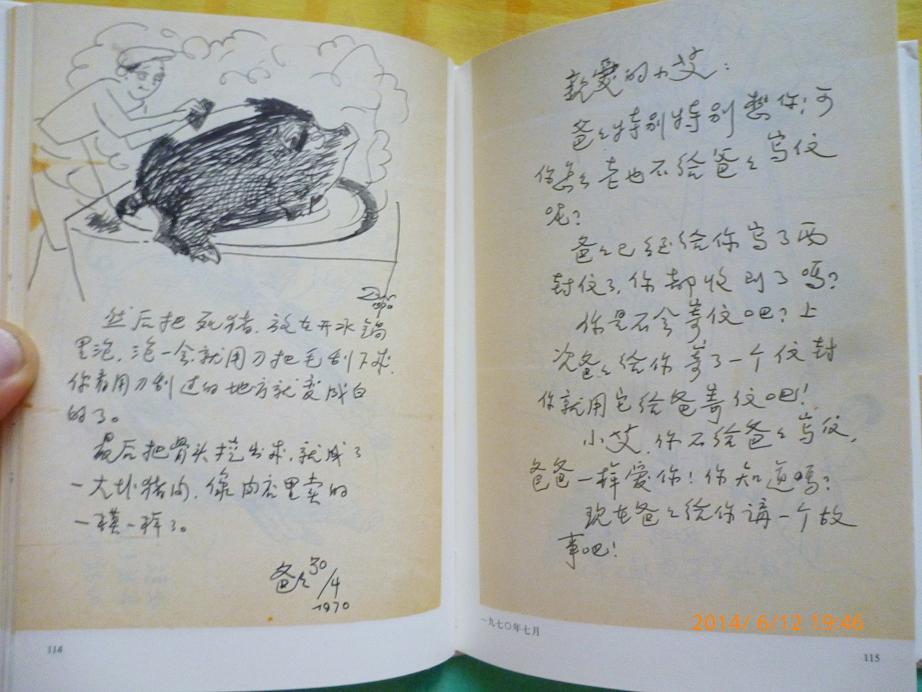 然后把死猪,放在开水锅
里泡,泡一会就用刀把毛刮下来.
你看用刀刮过的地方就变成白
的了。
最后把骨头挖出来,就成了
一大块猪肉,像肉店里卖的
一模一样了。
爸爸 30/4
1970
114
亲爱的小艾:
爸爸特别特别想你!可
你怎么老也不给爸爸写信
呢?
爸爸已经给你写了两
封信了,你都收到了吗?
你是不会寄信吧?上
次爸爸给你寄了一个信封
你就用它给爸寄信吧!
小艾,你不给爸爸写信,
爸爸一样爱你!你知道吗?
现在爸爸给你讲一个故
事吧!
一九七〇年七月
115
2014/6/12 19:46